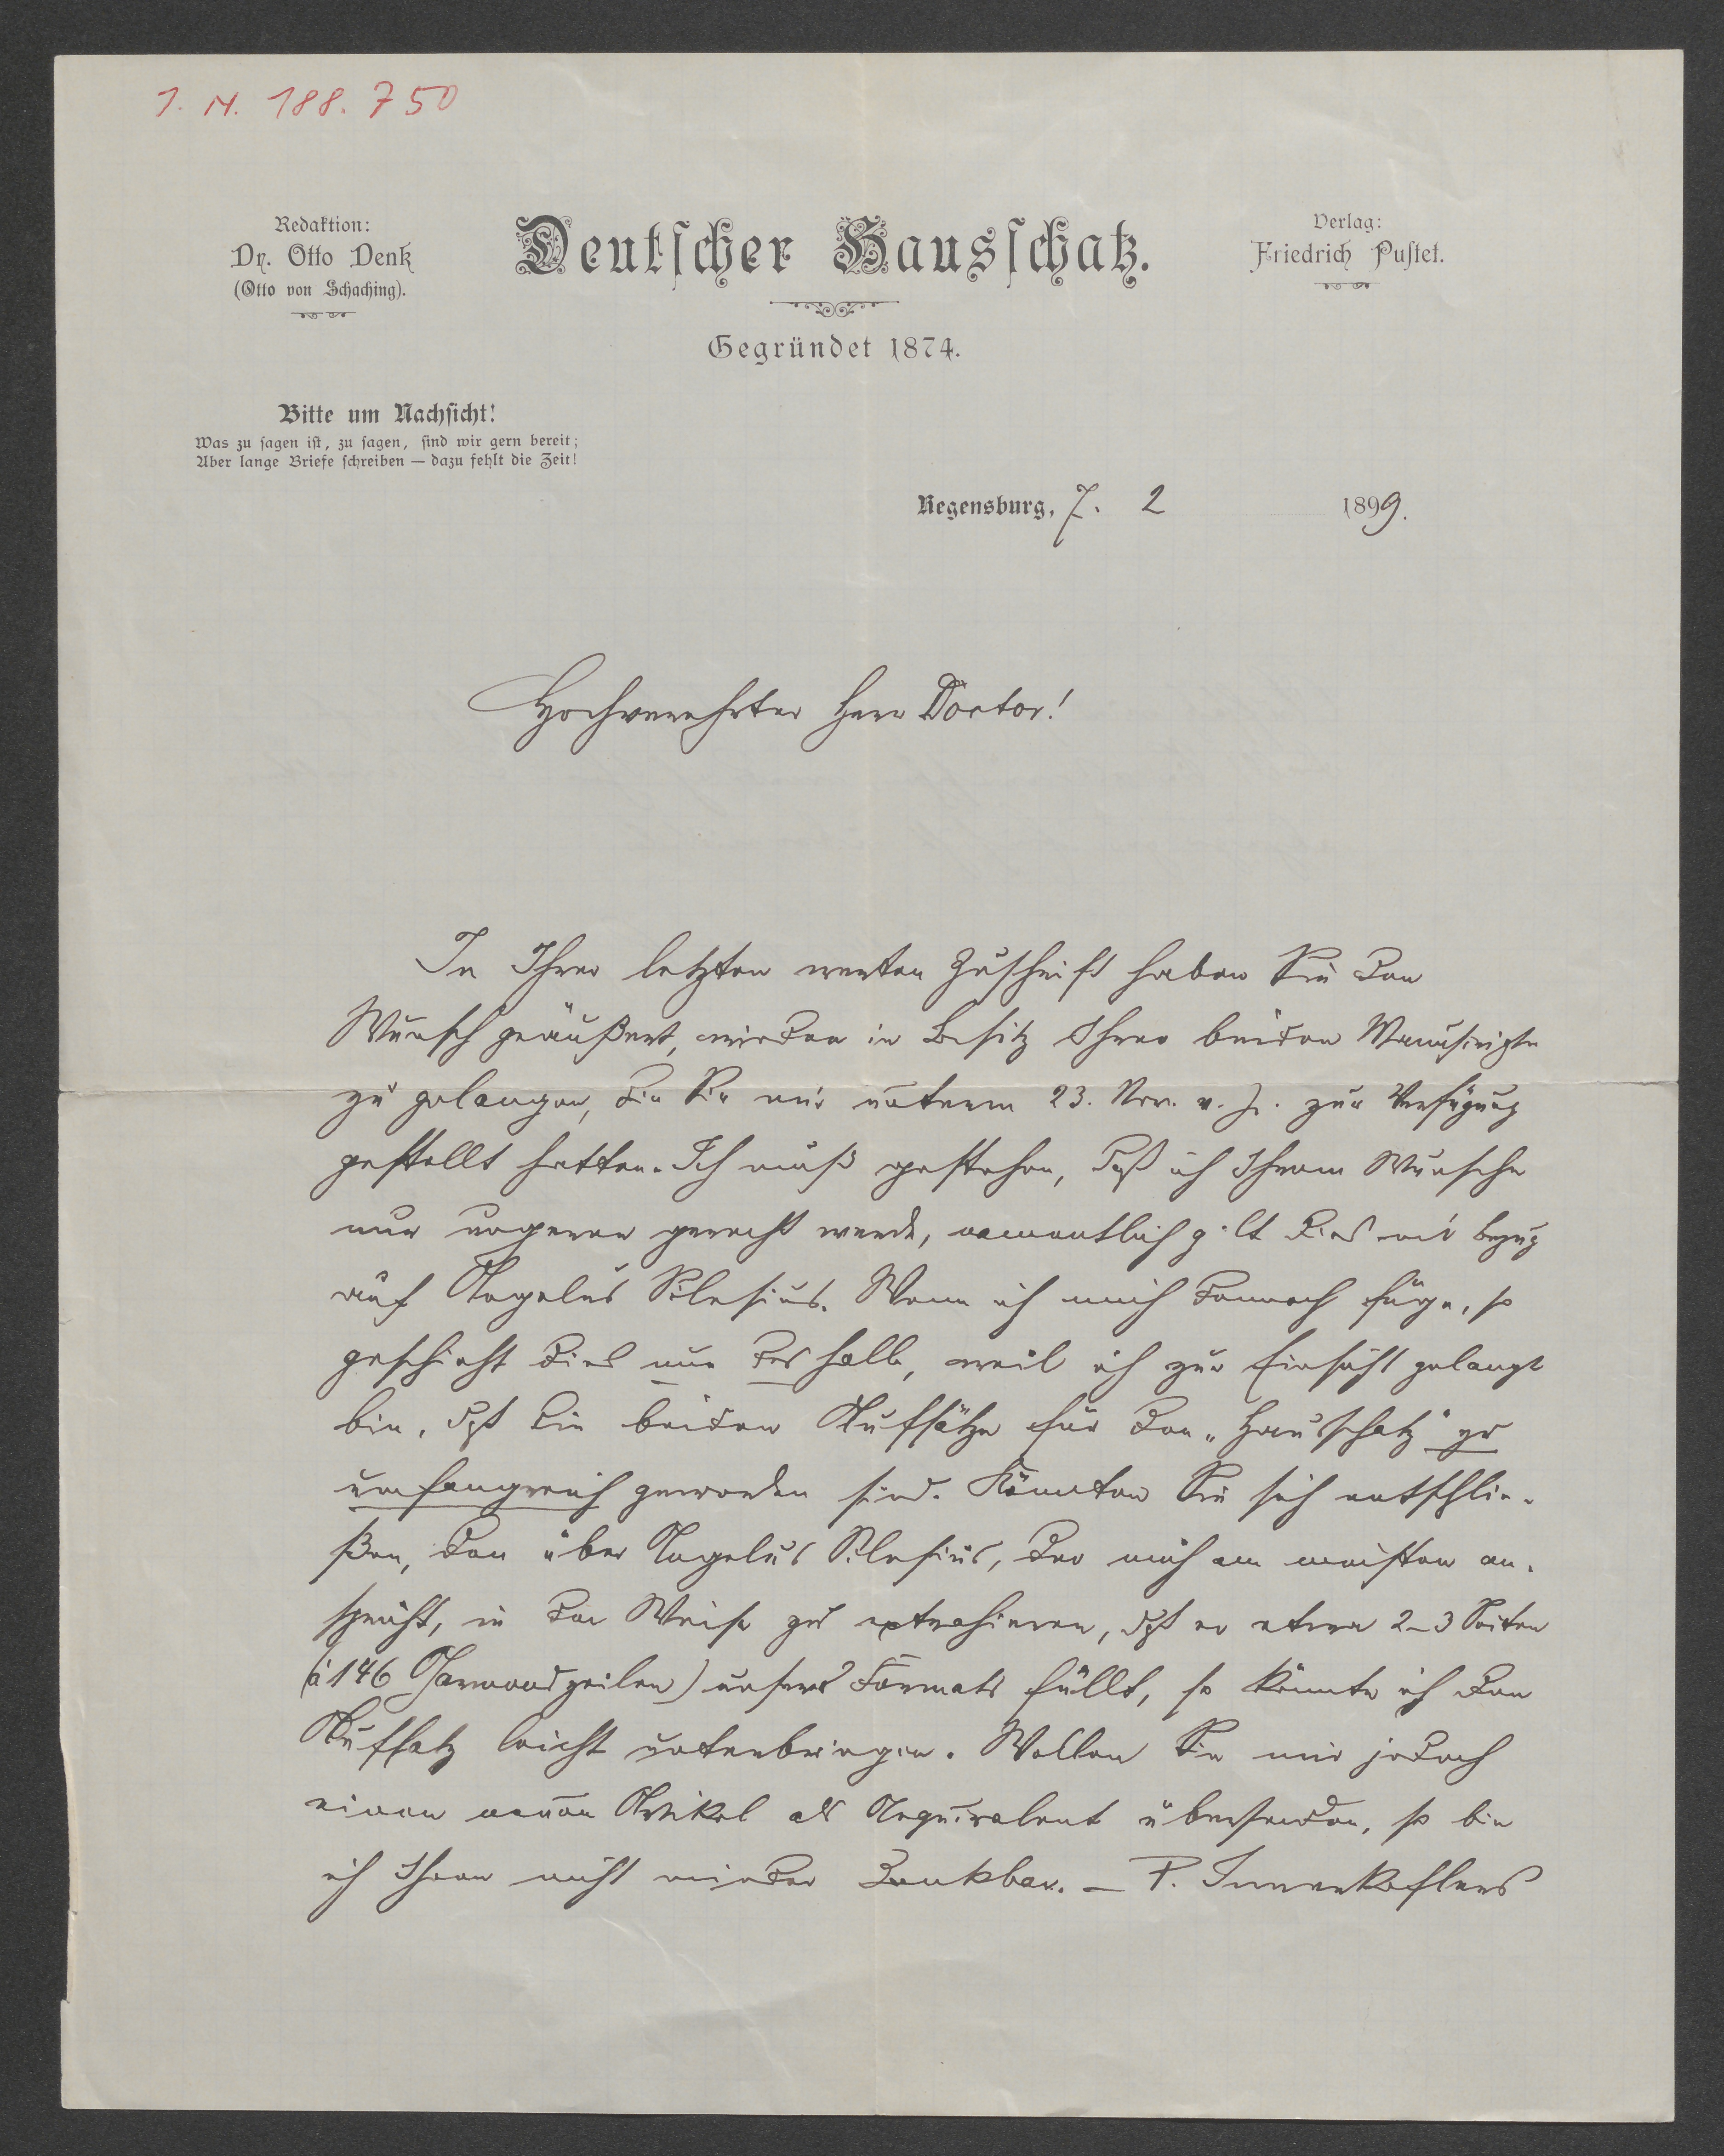 J. N. 188.750
Redaktion:
Dr. Otto Denk
(Otto von Schaching).
Deutscher Hausschatz.
Gegründet 1874.
Verlag:
Friedrich Pustet.
Bitte um Nachsicht!
Was zu sagen ist, zu sagen, sind wir gern bereit;
Aber lange Briefe schreiben — dazu fehlt die Zeit!
Regensburg, 7. 2 1899.
Hochverehrter Herr Doctor!
In Ihrer letzten werten Zuschrift haben Sie den
Wunsch geäußert, wieder in Besitz Ihrer beiden Manuscripte
zu gelangen, die Sie mir unterm 23. Nov. v. J. zur Verfügung
gestellt hatten. Ich muß gestehen, daß ich Ihrem Wunsche
nur ungerne gerecht werde, namentlich gilt dies mit bezug
auf Angelus Silesius. Wenn ich mich dennoch füge, so
geschieht dies nur deshalb, weil ich zur Einsicht gelangt
bin, daß die beiden Aufsätze für den „Hausschatz" zu
umfangreich geworden sind. Könnten Sie sich entschlie-
ßen, den über Angelus Silesius, der mich am meisten an-
spricht, in der Weise zu extrahieren, daß er etwa 2-3 Seiten
(à 146 Garmondzeilen) unsers Formats füllt, so könnte ich den
Aufsatz leicht unterbringen. Wollen Sie mir jedoch
einen neuen Artikel als Aequivalent übersenden, so bin
ich Ihnen nicht minder dankbar. — P. Innerkoflers